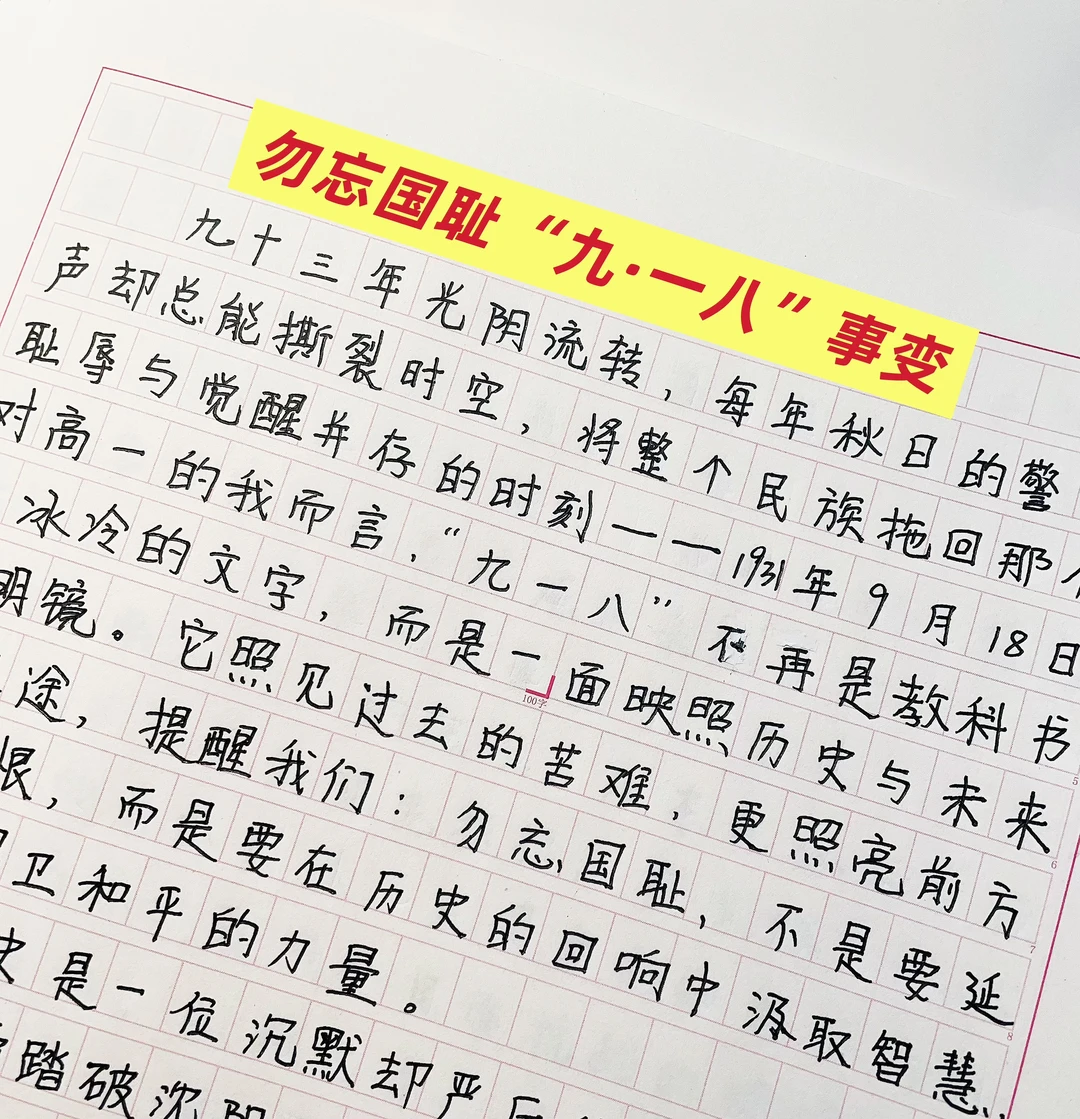 勿忘国耻“九·一八”事变
九十三年光阴流转，每年秋日的警
声却总能撕裂时空，将整个民族拖回那个
耻辱与觉醒并存的时刻——1931年9月18日
对高一的我而言，“九一八”不再是教科书
冰冷的文字，而是一面映照历史与未来
明镜。它照见过去的苦难，更照亮前方
途，提醒我们：勿忘国耻，不是要延
恨，而是要在历史的回响中汲取智慧，
卫和平的力量。
100字
史是一位沉默却严
踏破沈阳
5
6
7
8